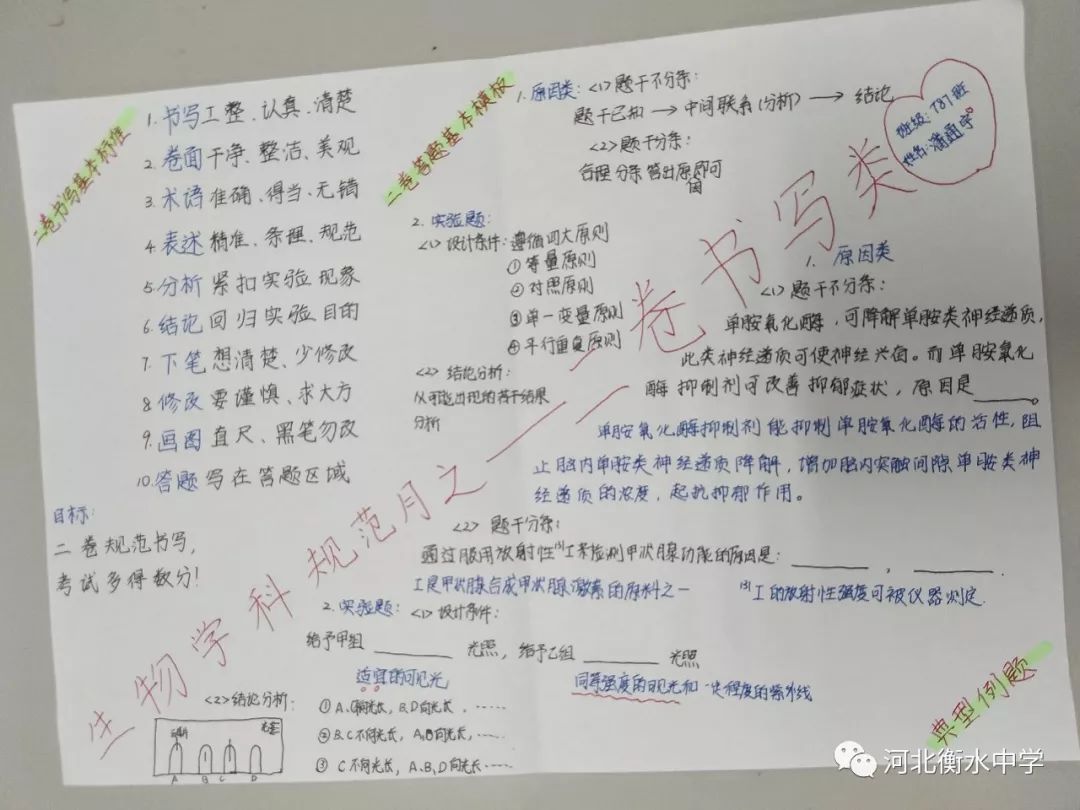 生物学科规范月之——二卷书写类
班级：787班
姓名：潘通宇
二卷书写基本标准
1. 书写工整、认真、清楚
2. 卷面干净、整洁、美观
3. 术语准确、得当、无错
4. 表述精准、条理、规范
5. 分析紧扣实验现象
6. 结论回归实验目的
7. 下笔想清楚、少修改
8. 修改要谨慎、求大方
9. 画图直尺、黑笔勿改
10. 答题写在答题区域
目标：
二卷规范书写，
考试多得数分！
二卷答题基本模板
1. 原因类：<1>题干不分条：
题干已知→中间联系(分析)→结论
<2>题干分条：
合理分条答出原因即可
2. 实验题：
<1>设计条件：遵循四大原则
①等量原则
②对照原则
③单一变量原则
④平行重复原则
<2>结论分析：
从可能出现的若干结果
分析
典型例题
1. 原因类
<1>题干不分条：
单胺氧化酶，可降解单胺类神经递质，
此类神经递质可使神经兴奋。而单胺氧化
酶抑制剂可改善抑郁症状，原因是______。
单胺氧化酶抑制剂能抑制单胺氧化酶的活性，阻
止脑内单胺类神经递质降解，增加脑内突触间隙单胺类神
经递质的浓度，起抗抑郁作用。
<2>题干分条：
通过服用放射性¹³¹I来检测甲状腺功能的原因是：______，______.
I是甲状腺合成甲状腺激素的原料之一 ¹³¹I的放射性强度可被仪器测定.
2. 实验题：<1>设计条件：
给予甲组______光照，给予乙组______光照
适宜的可见光 同等强度的可见光和一定程度的紫外线
<2>结论分析：
A B C D
①A、C向光长，B、D向光长，……
②B、C不向光长，A、D向光长，……
③C不向光长，A、B、D向光长……
河北衡水中学